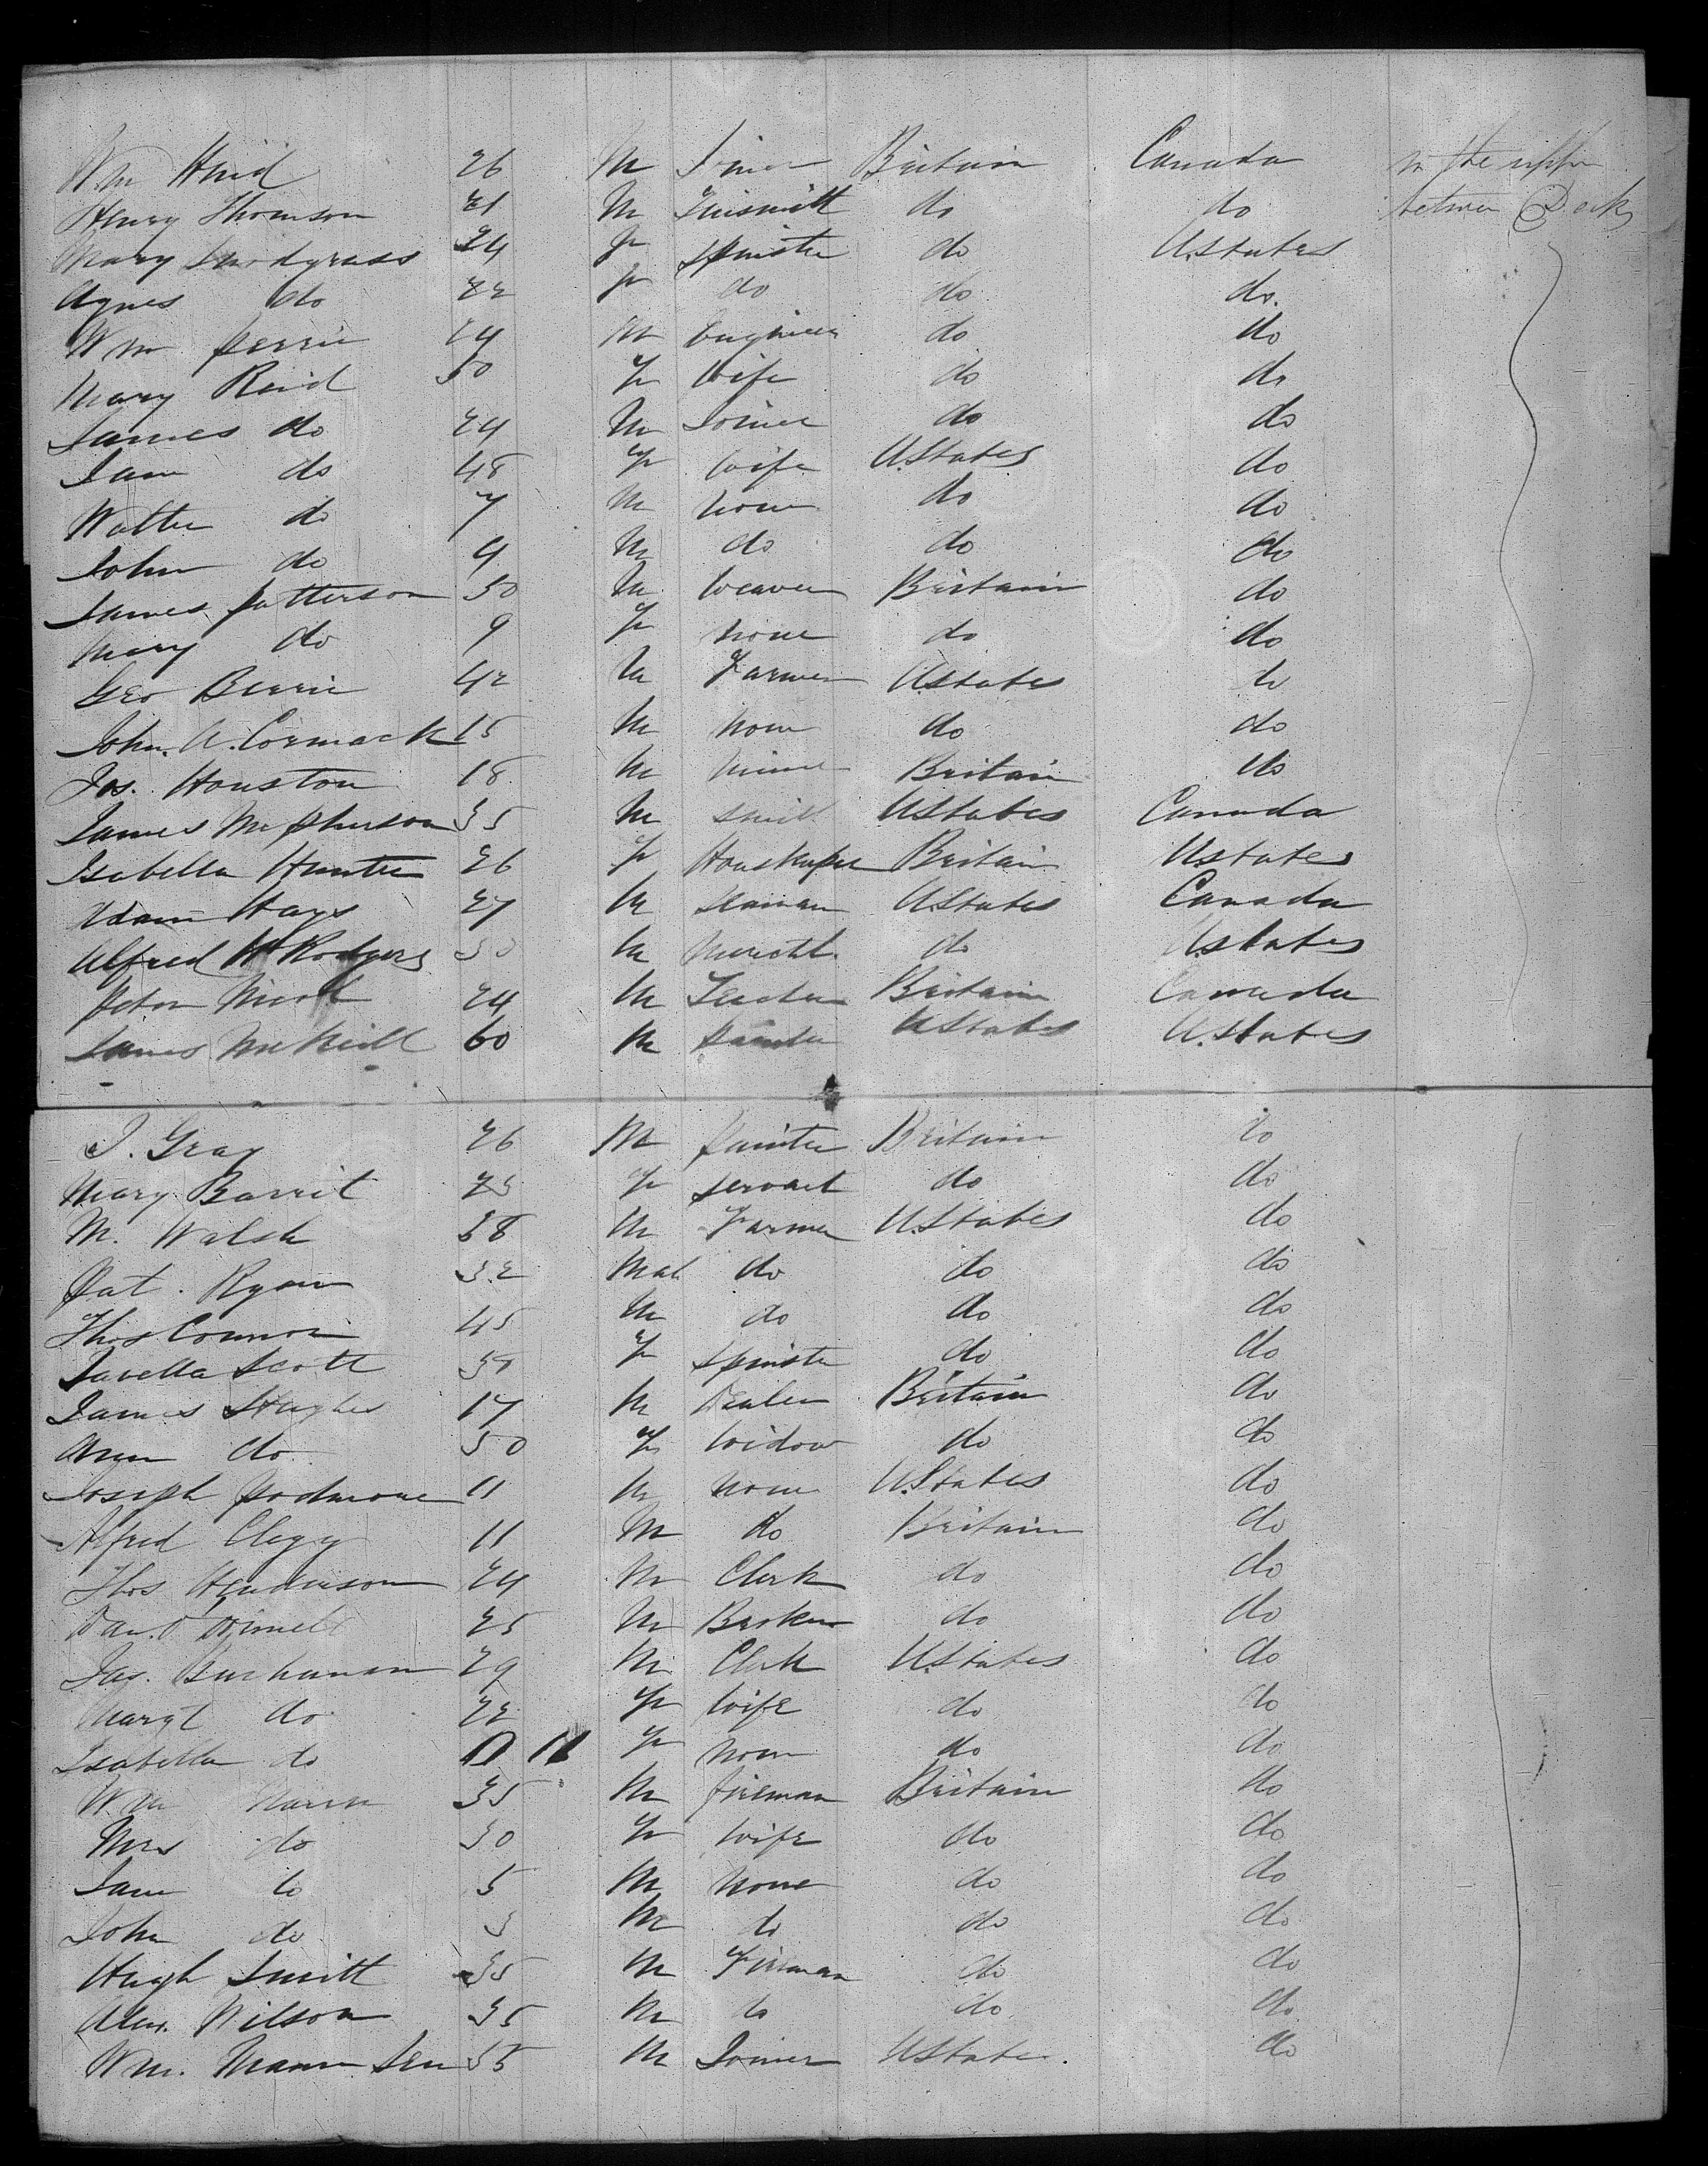 Wm 26 M Joiner Britain Canada in the upper
Henry Thomson 21 M Tinsmith do do between Decks
Mary Snodgrass 24 F Spinster do U.States
Agnes do 22 F do do do.
Wm Perrie 24 M Engineer do do
Mary Reid 50 F Wife do do
James do 24 M Joiner do do
Jane do 48 F Wife U.States do
Walter do 7 M none do do
John do 4 M do do do
James Patterson 50 M Weaver Britain do
Mary do 9 F none do do
Geo 42 M Farmer U.States do
John. A. Cormack 15 M none do do
Jos. Houston 18 M Miner Britain do
James McPherson 35 M Smith U.States Canada
Isabella Hunter 26 F Housekeeper Britain U.States
Adam Hays 27 M Seaman U.States Canada
Alfred H Rodgers 30 M Mercht. do U.States
Peter Nicol 24 M Britain Canada
James McNeill 60 M U.States U.States
J. Gray 26 M Painter Britain do
Mary Barrit 25 F Servant do do
M. Walsh 38 M Farmer U.States do
Pat. Ryan 32 Mal do do do
Thos Connor 45 M do do do
Scott F Spinster do do
James Hughes 17 M Dealer Britain do
Ann do 50 F Widow do do
Joseph Podmore 11 M none U.States do
Alfred Clegg 11 M do Britain do
Thos Henderson 24 M Clerk do do
25 M do do
Jas. Buchanan 29 M Clerk U.States do
Margt do 22 F Wife do do
Isabella do 11 F none do do
Wm 35 M Fireman Britain do
Mrs do 30 F Wife do do
Jam do 5 M none do do
John do 3 M do do do
Hugh Smith 35 M Fireman do do
Alex. Wilson 35 M do do do
Wm. Mann Sen 55 M Joiner U.States. do